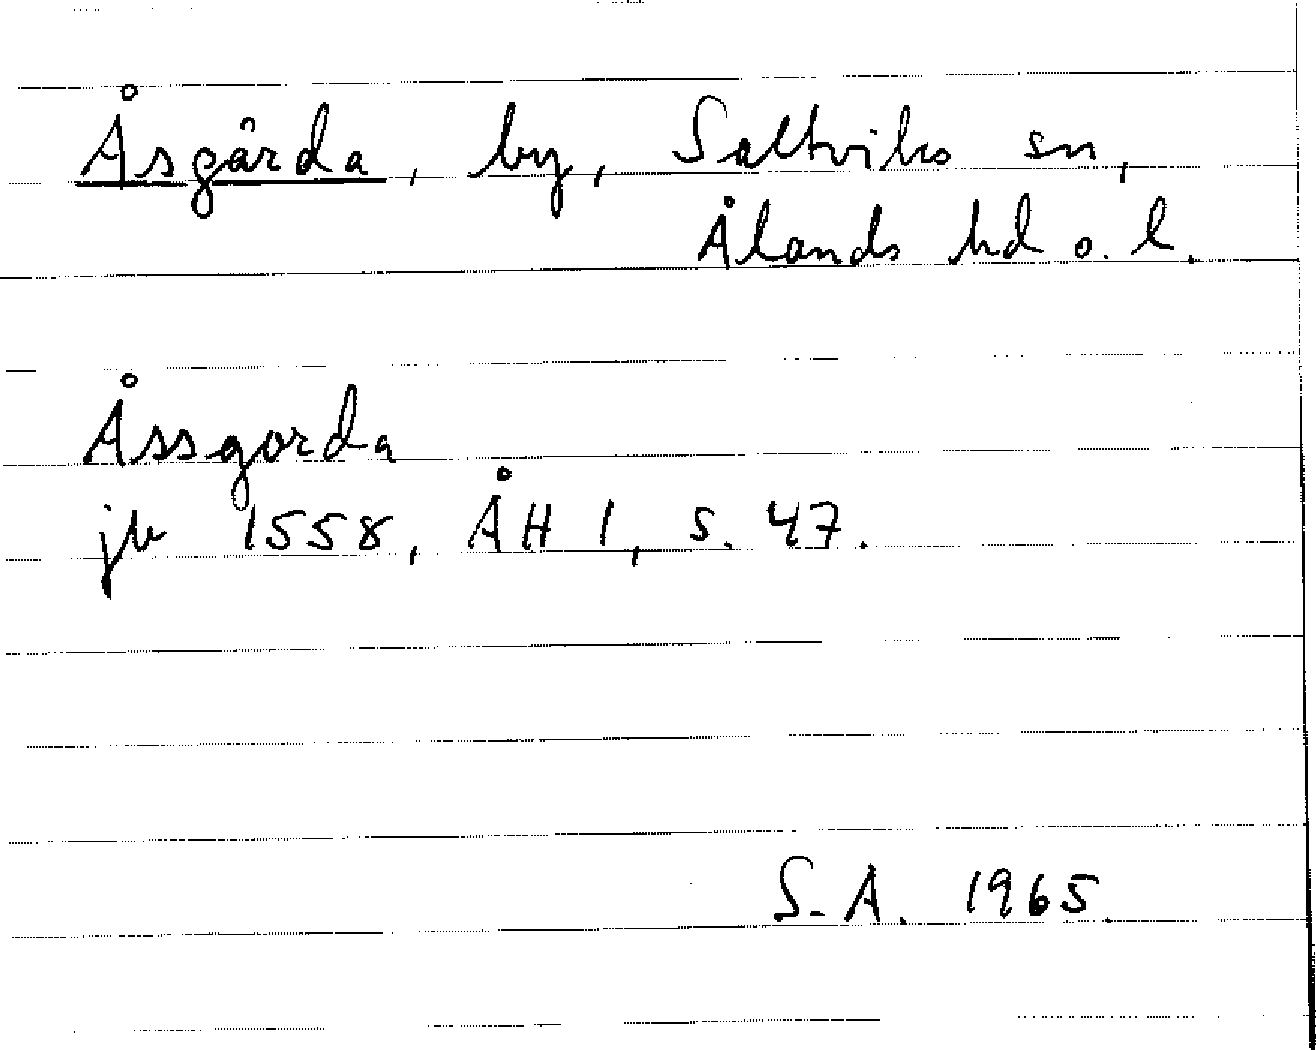 Åsgårda, by, Saltviks sn,
Ålands hd o. l.
Åssgorda
jb 1558, ÅH 1, s. 47.
S.A. 1965.